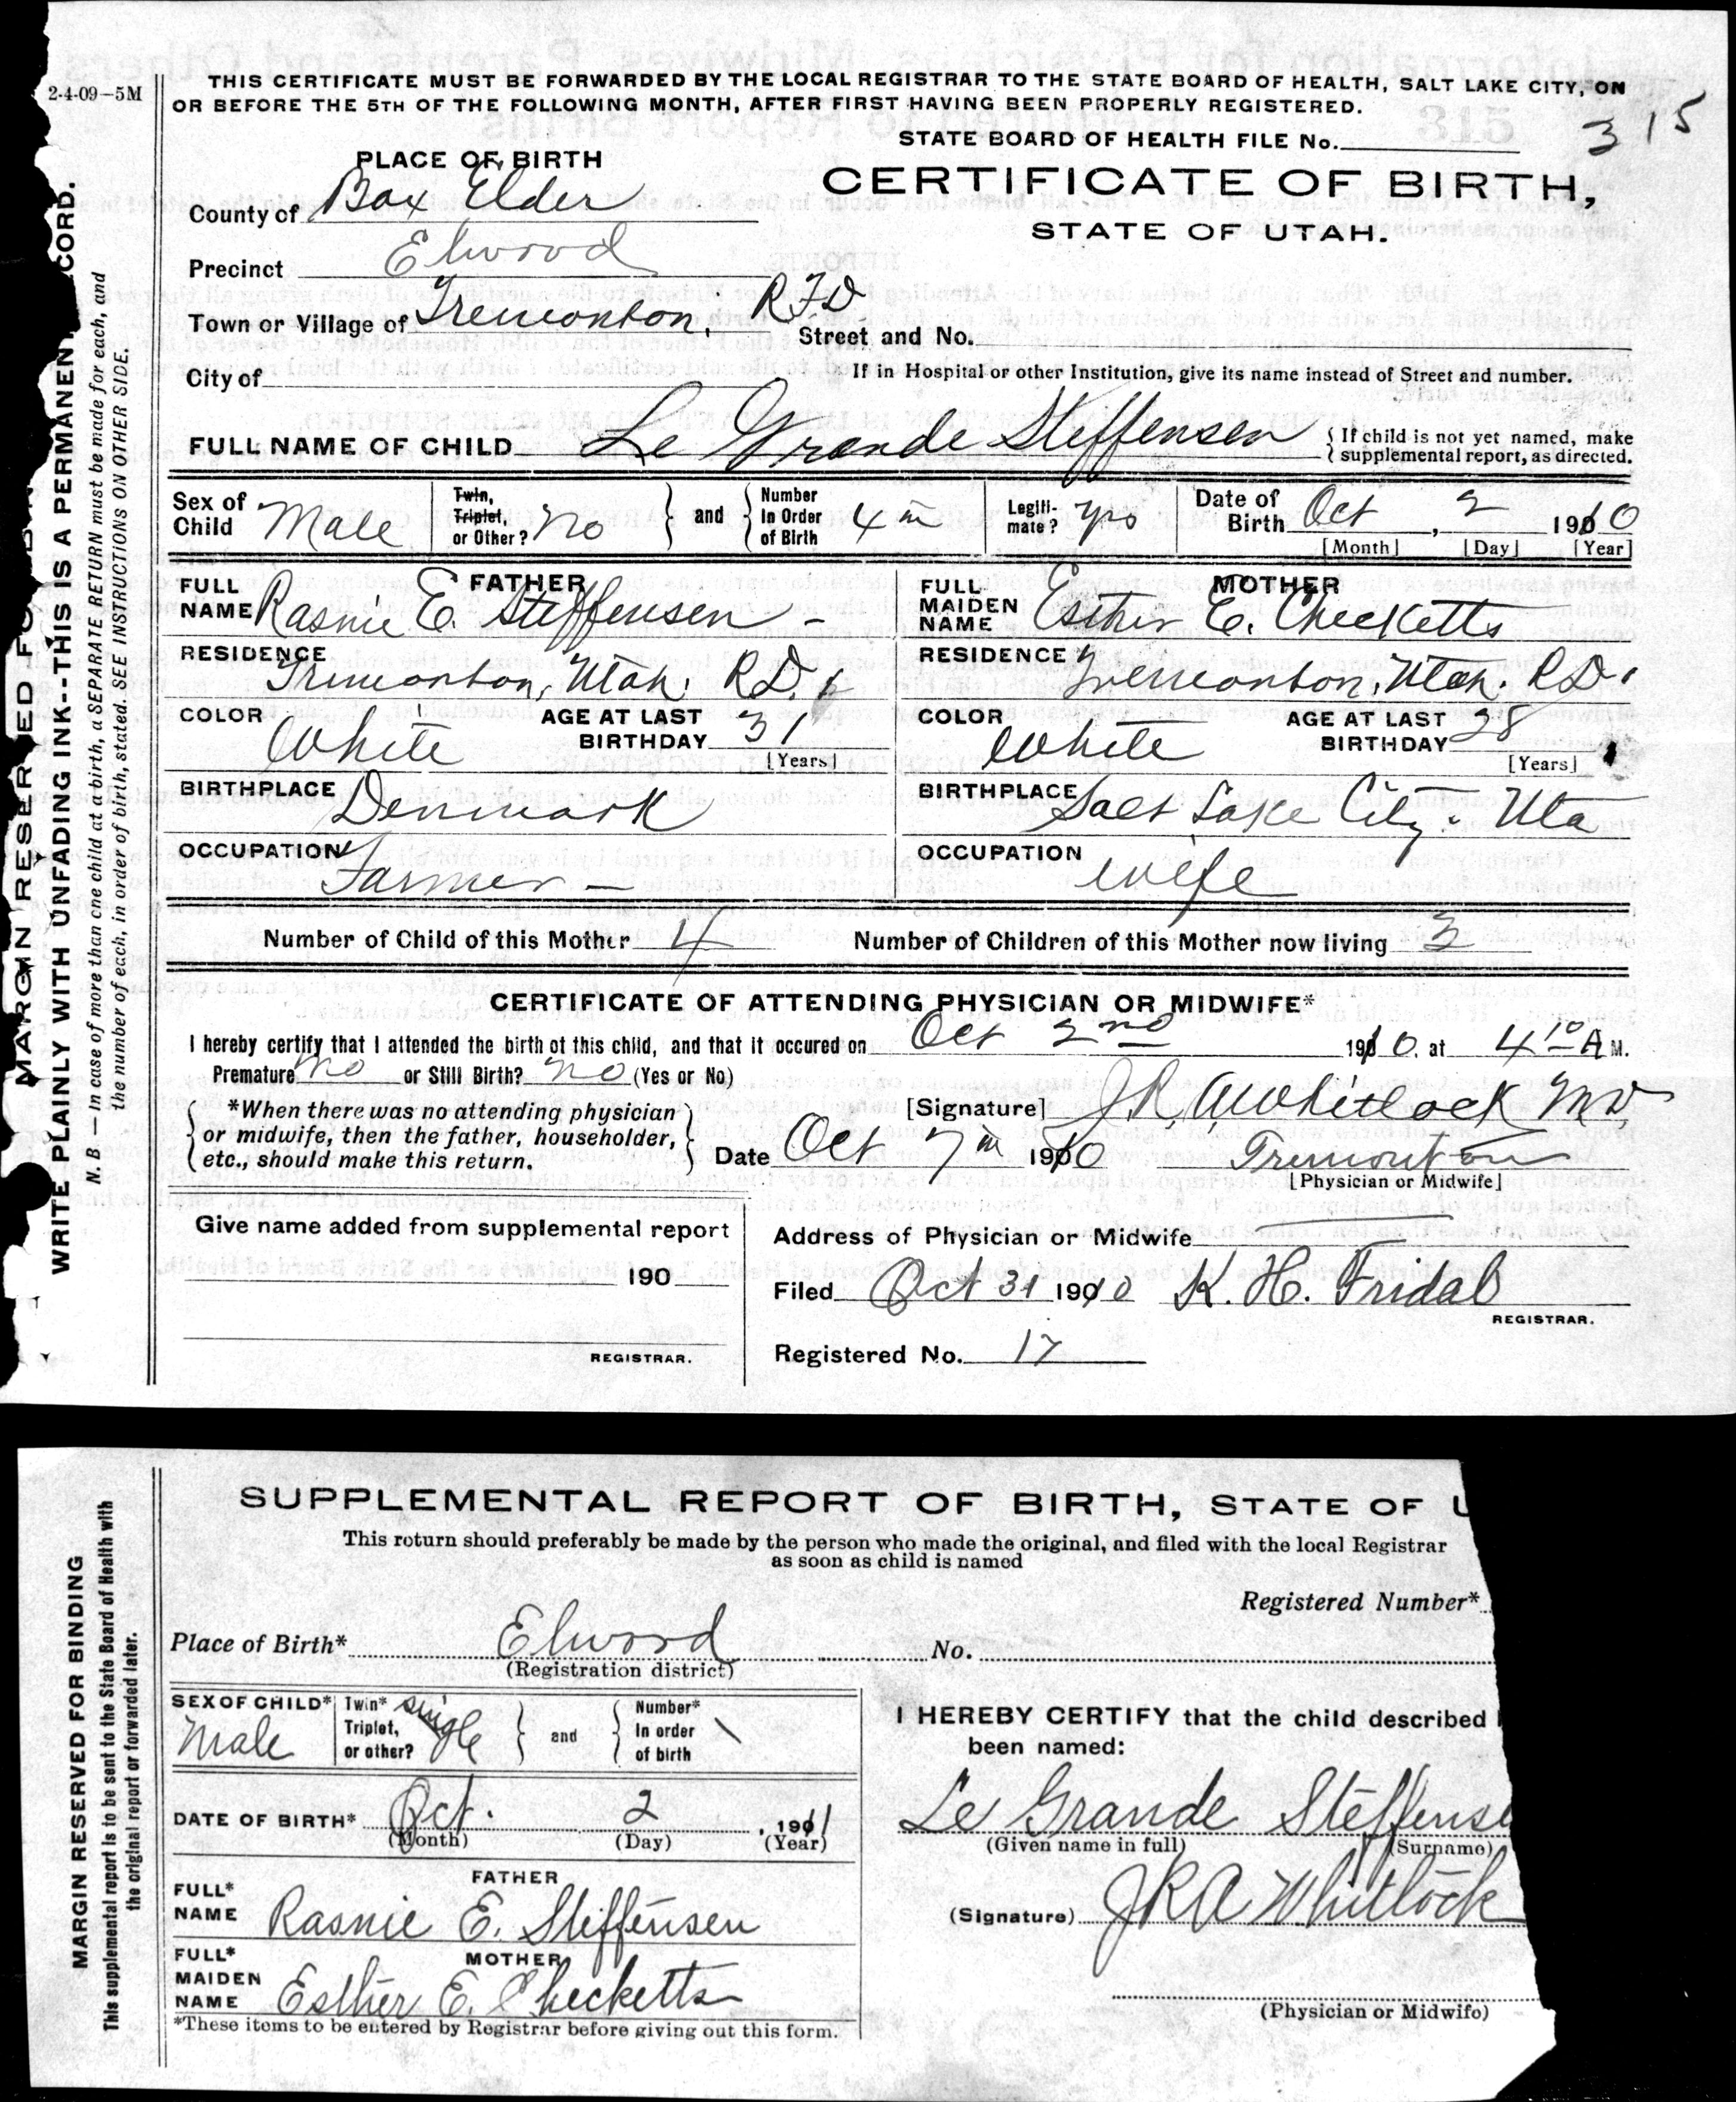 2-4-09—5M
THIS CERTIFICATE MUST BE FORWARDED BY THE LOCAL REGISTRAR TO THE STATE BOARD OF HEALTH, SALT LAKE CITY, ON
OR BEFORE THE 5TH OF THE FOLLOWING MONTH, AFTER FIRST HAVING BEEN PROPERLY REGISTERED.
STATE BOARD OF HEALTH FILE No. 315
MARGIN RESER ED FO
WRITE PLAINLY WITH UNFADING INK--THIS IS A PERMANENT CORD.
N. B. — In case of more than one child at a birth, a SEPARATE RETURN must be made for each, and
the number of each, in order of birth, stated. SEE INSTRUCTIONS ON OTHER SIDE.
PLACE OF BIRTH
CERTIFICATE OF BIRTH,
STATE OF UTAH.
County of Box Elder
Precinct Elwood
Town or Village of Tremonton. RFD Street and No.
City of If in Hospital or other Institution, give its name instead of Street and number.
FULL NAME OF CHILD Le Grande Steffensen { If child is not yet named, make
supplemental report, as directed.
Sex of Child Male
Twin, Triplet, or Other? No
and
Number In Order of Birth 4th
Legiti-mate? yes
Date of Birth Oct, 2 1910
[Month] [Day] [Year]
FATHER
FULL NAME Rasmie E. Steffensen -
RESIDENCE Tremonton, Utah. R.D. 1
COLOR White AGE AT LAST BIRTHDAY 31
[Years]
BIRTHPLACE Denmark
OCCUPATION Farmer —
MOTHER
FULL MAIDEN NAME Esther E. Checketts
RESIDENCE Tremonton, Utah. RD.
COLOR White AGE AT LAST BIRTHDAY 28
[Years]
BIRTHPLACE Salt Lake City. Uta
OCCUPATION wife
Number of Child of this Mother 4 Number of Children of this Mother now living 3
CERTIFICATE OF ATTENDING PHYSICIAN OR MIDWIFE*
I hereby certify that I attended the birth of this child, and that it occured on Oct 2nd 1910. at 4 10 A M.
Premature No or Still Birth? No (Yes or No)
*When there was no attending physician
or midwife, then the father, householder,
etc., should make this return.
[Signature] J R. A. Whitlock MD.
Date Oct 7th 1910 Tremonton
[Physician or Midwife]
Give name added from supplemental report
190
REGISTRAR.
Address of Physician or Midwife
Filed Oct 31 1910 K. H. Fridal
REGISTRAR.
Registered No. 17
MARGIN RESERVED FOR BINDING
This supplemental report is to be sent to the State Board of Health with
the original report or forwarded later.
SUPPLEMENTAL REPORT OF BIRTH, STATE OF U
This return should preferably be made by the person who made the original, and filed with the local Registrar
as soon as child is named
Registered Number*
Place of Birth* Elwood No.
(Registration district)
SEX OF CHILD* Male
Twin* Triplet, or other? single
and
Number* In order of birth
DATE OF BIRTH* Oct. 2, 1911
(Month) (Day) (Year)
FATHER
FULL* NAME Rasmie E. Steffensen
MOTHER
FULL* MAIDEN NAME Esther E. Checketts
*These items to be entered by Registrar before giving out this form.
I HEREBY CERTIFY that the child described
been named:
Le Grande Steffense
(Given name in full) (Surname)
(Signature) J R A Whitlock
(Physician or Midwife)